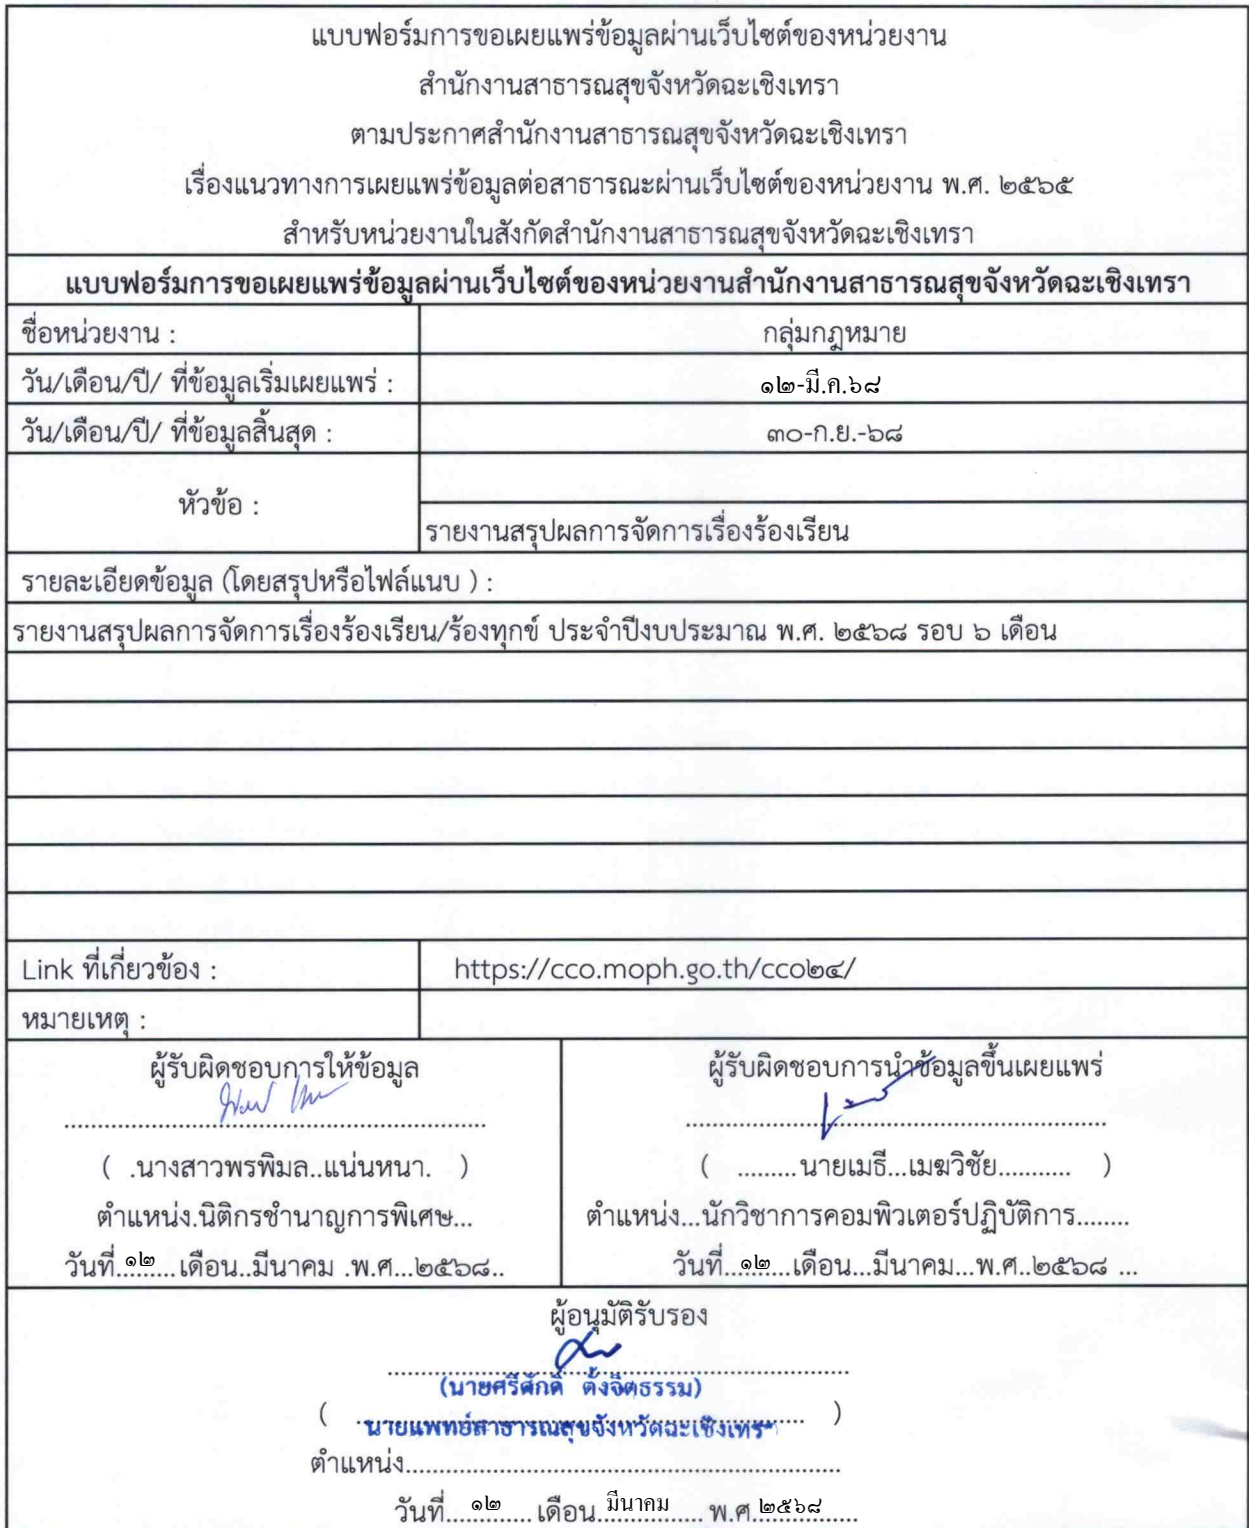 แบบฟอร์มการขอเผยแพร่ข้อมูลผ่านเว็บไซต์ของหน่วยงาน
สำนักงานสาธารณสุขจังหวัดฉะเชิงเทรา
ตามประกาศสำนักงานสาธารณสุขจังหวัดฉะเชิงเทรา
เรื่องแนวทางการเผยแพร่ข้อมูลต่อสาธารณะผ่านเว็บไซต์ของหน่วยงาน พ.ศ. ๒๕๖๕
สำหรับหน่วยงานในสังกัดสำนักงานสาธารณสุขจังหวัดฉะเชิงเทรา
แบบฟอร์มการขอเผยแพร่ข้อมูลผ่านเว็บไซต์ของหน่วยงานสำนักงานสาธารณสุขจังหวัดฉะเชิงเทรา
ชื่อหน่วยงาน : กลุ่มกฎหมาย
วัน/เดือน/ปี/ ที่ข้อมูลเริ่มเผยแพร่ : ๑๒-มี.ค.๖๘
วัน/เดือน/ปี/ ที่ข้อมูลสิ้นสุด : ๓๐-ก.ย.-๖๘
หัวข้อ :
รายงานสรุปผลการจัดการเรื่องร้องเรียน
รายละเอียดข้อมูล (โดยสรุปหรือไฟล์แนบ ) :
รายงานสรุปผลการจัดการเรื่องร้องเรียน/ร้องทุกข์ ประจำปีงบประมาณ พ.ศ. ๒๕๖๘ รอบ ๖ เดือน
Link ที่เกี่ยวข้อง : https://cco.moph.go.th/cco๒๔/
หมายเหตุ :
ผู้รับผิดชอบการให้ข้อมูล
( .นางสาวพรพิมล..แน่นหนา. )
ตำแหน่ง.นิติกรชำนาญการพิเศษ...
วันที่....๑๒....เดือน..มีนาคม .พ.ศ...๒๕๖๘..
ผู้รับผิดชอบการนำข้อมูลขึ้นเผยแพร่
( .........นายเมธี...เมฆวิชัย.......... )
ตำแหน่ง...นักวิชาการคอมพิวเตอร์ปฏิบัติการ........
วันที่...๑๒....เดือน...มีนาคม...พ.ศ..๒๕๖๘ ...
ผู้อนุมัติรับรอง
(นายศรีศักดิ์ ตั้งจิตธรรม)
( นายแพทย์สาธารณสุขจังหวัดฉะเชิงเทรา )
ตำแหน่ง............................................................
วันที่....๑๒..... เดือน..มีนาคม.... พ.ศ..๒๕๖๘....